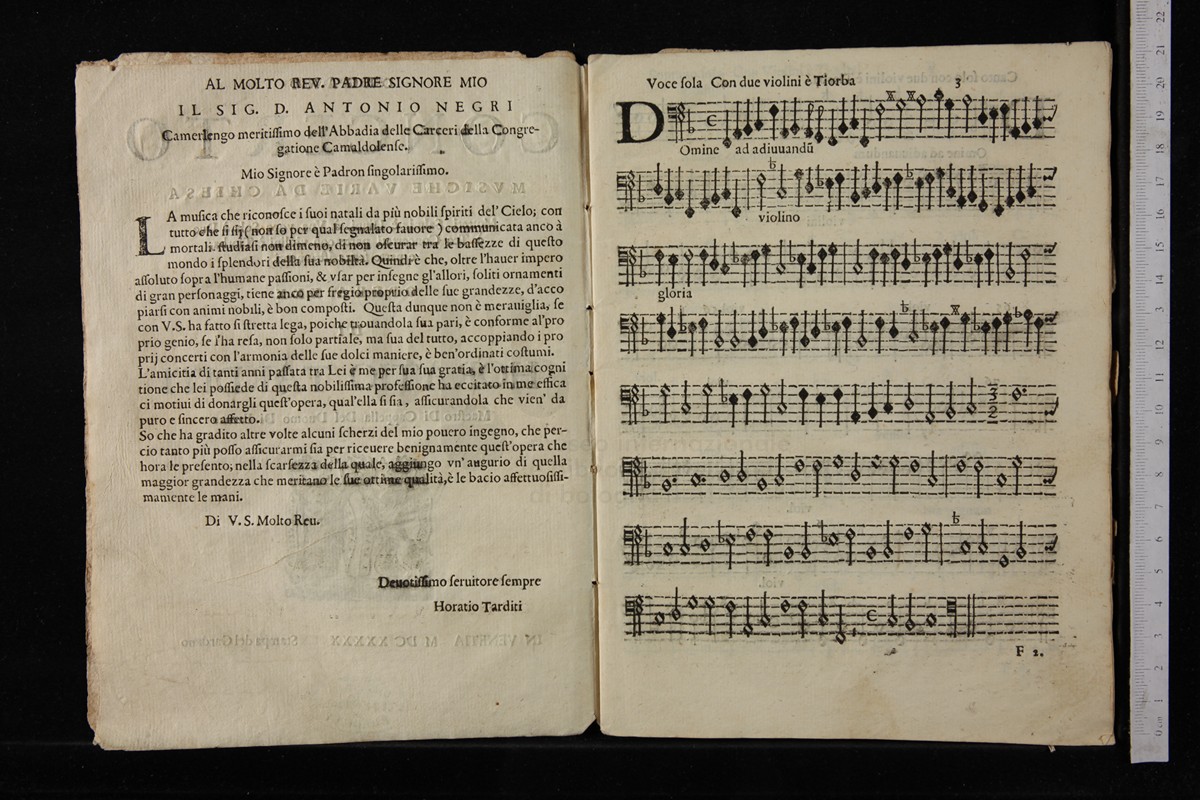 AL MOLTO REV. PADRE SIGNORE MIO
IL SIG. D. ANTONIO NEGRI
Camerlengo meritiſſimo dell'Abbadia delle Carceri della Congre-
gatione Camaldolenſe.
Mio Signore è Padron ſingolariſſimo.
LA muſica che riconoſce i ſuoi natali da più nobili ſpiriti del' Cielo; con
tutto che ſi ſij (non ſo per qual ſegnalato fauore) communicata anco à
mortali. ſtudiaſi non dimeno, di non oſcurar tra le baſſezze di queſto
mondo i ſplendori della ſua nobiltà. Quindi è che, oltre l'hauer impero
aſſoluto ſopra l'humane paſſioni, & vſar per inſegne gl'allori, ſoliti ornamenti
di gran perſonaggi, tiene anco per fregio proprio delle ſue grandezze, d'acco
piarſi con animi nobili, è bon compoſti. Queſta dunque non è merauiglia, ſe
con V.S. ha fatto ſi ſtretta lega, poiche trouandola ſua pari, è conforme al'pro
prio genio, ſe l'ha reſa, non ſolo partiale, ma ſua del tutto, accoppiando i pro
prij concerti con l'armonia delle ſue dolci maniere, è ben'ordinati coſtumi.
L'amicitia di tanti anni paſſata tra Lei è me per ſua ſua gratia, è l'ottima cogni
tione che lei poſſiede di queſta nobiliſſima profeſſione ha eccitato in me effica
ci motiui di donargli queſt'opera, qual'ella ſi ſia, aſſicurandola che vien' da
puro e ſincero affetto.
So che ha gradito altre volte alcuni ſcherzi del mio pouero ingegno, che per-
cio tanto più poſſo aſſicurarmi ſia per riceuere benignamente queſt'opera che
hora le preſento; nella ſcarſezza della quale, aggiungo vn' augurio di quella
maggior grandezza che meritano le ſue ottime qualità, è le bacio affettuoſiſſi-
mamente le mani.
Di V. S. Molto Reu.
Deuotiſſimo ſeruitore ſempre
Horatio Tarditi
Voce ſola Con due violini è Tiorba 3
DOmine ad adiuuandū
violino
gloria
F 2.